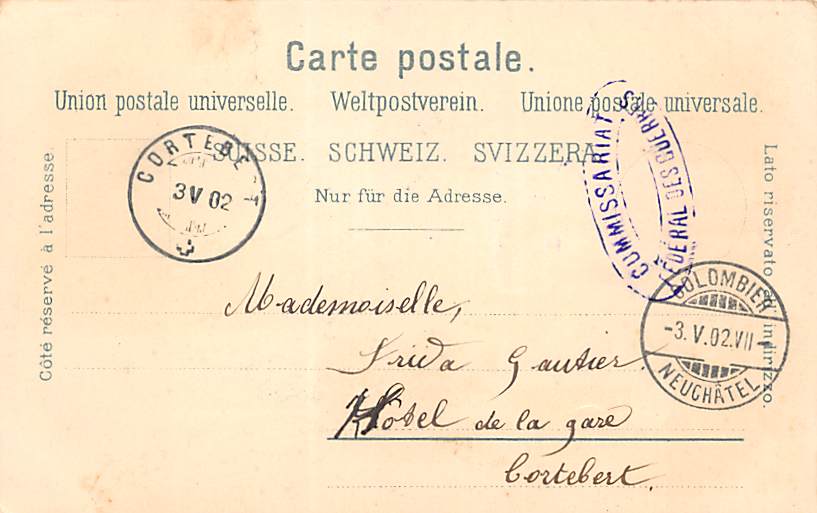 Carte postale.
Union postale universelle. Weltpostverein. Unione postale universale.
SUISSE. SCHWEIZ. SVIZZERA
Nur für die Adresse.
Côté réservé à l'adresse.
Lato riservato all'indirizzo.
CORTEBERT
3 V 02
COMMISSARIAT
FÉDÉRAL DES GUERRES
COLOMBIER
-3. V. 02. VII-
NEUCHÂTEL
Mademoiselle,
Frida Gautier.
Hôtel de la gare
Cortebert.